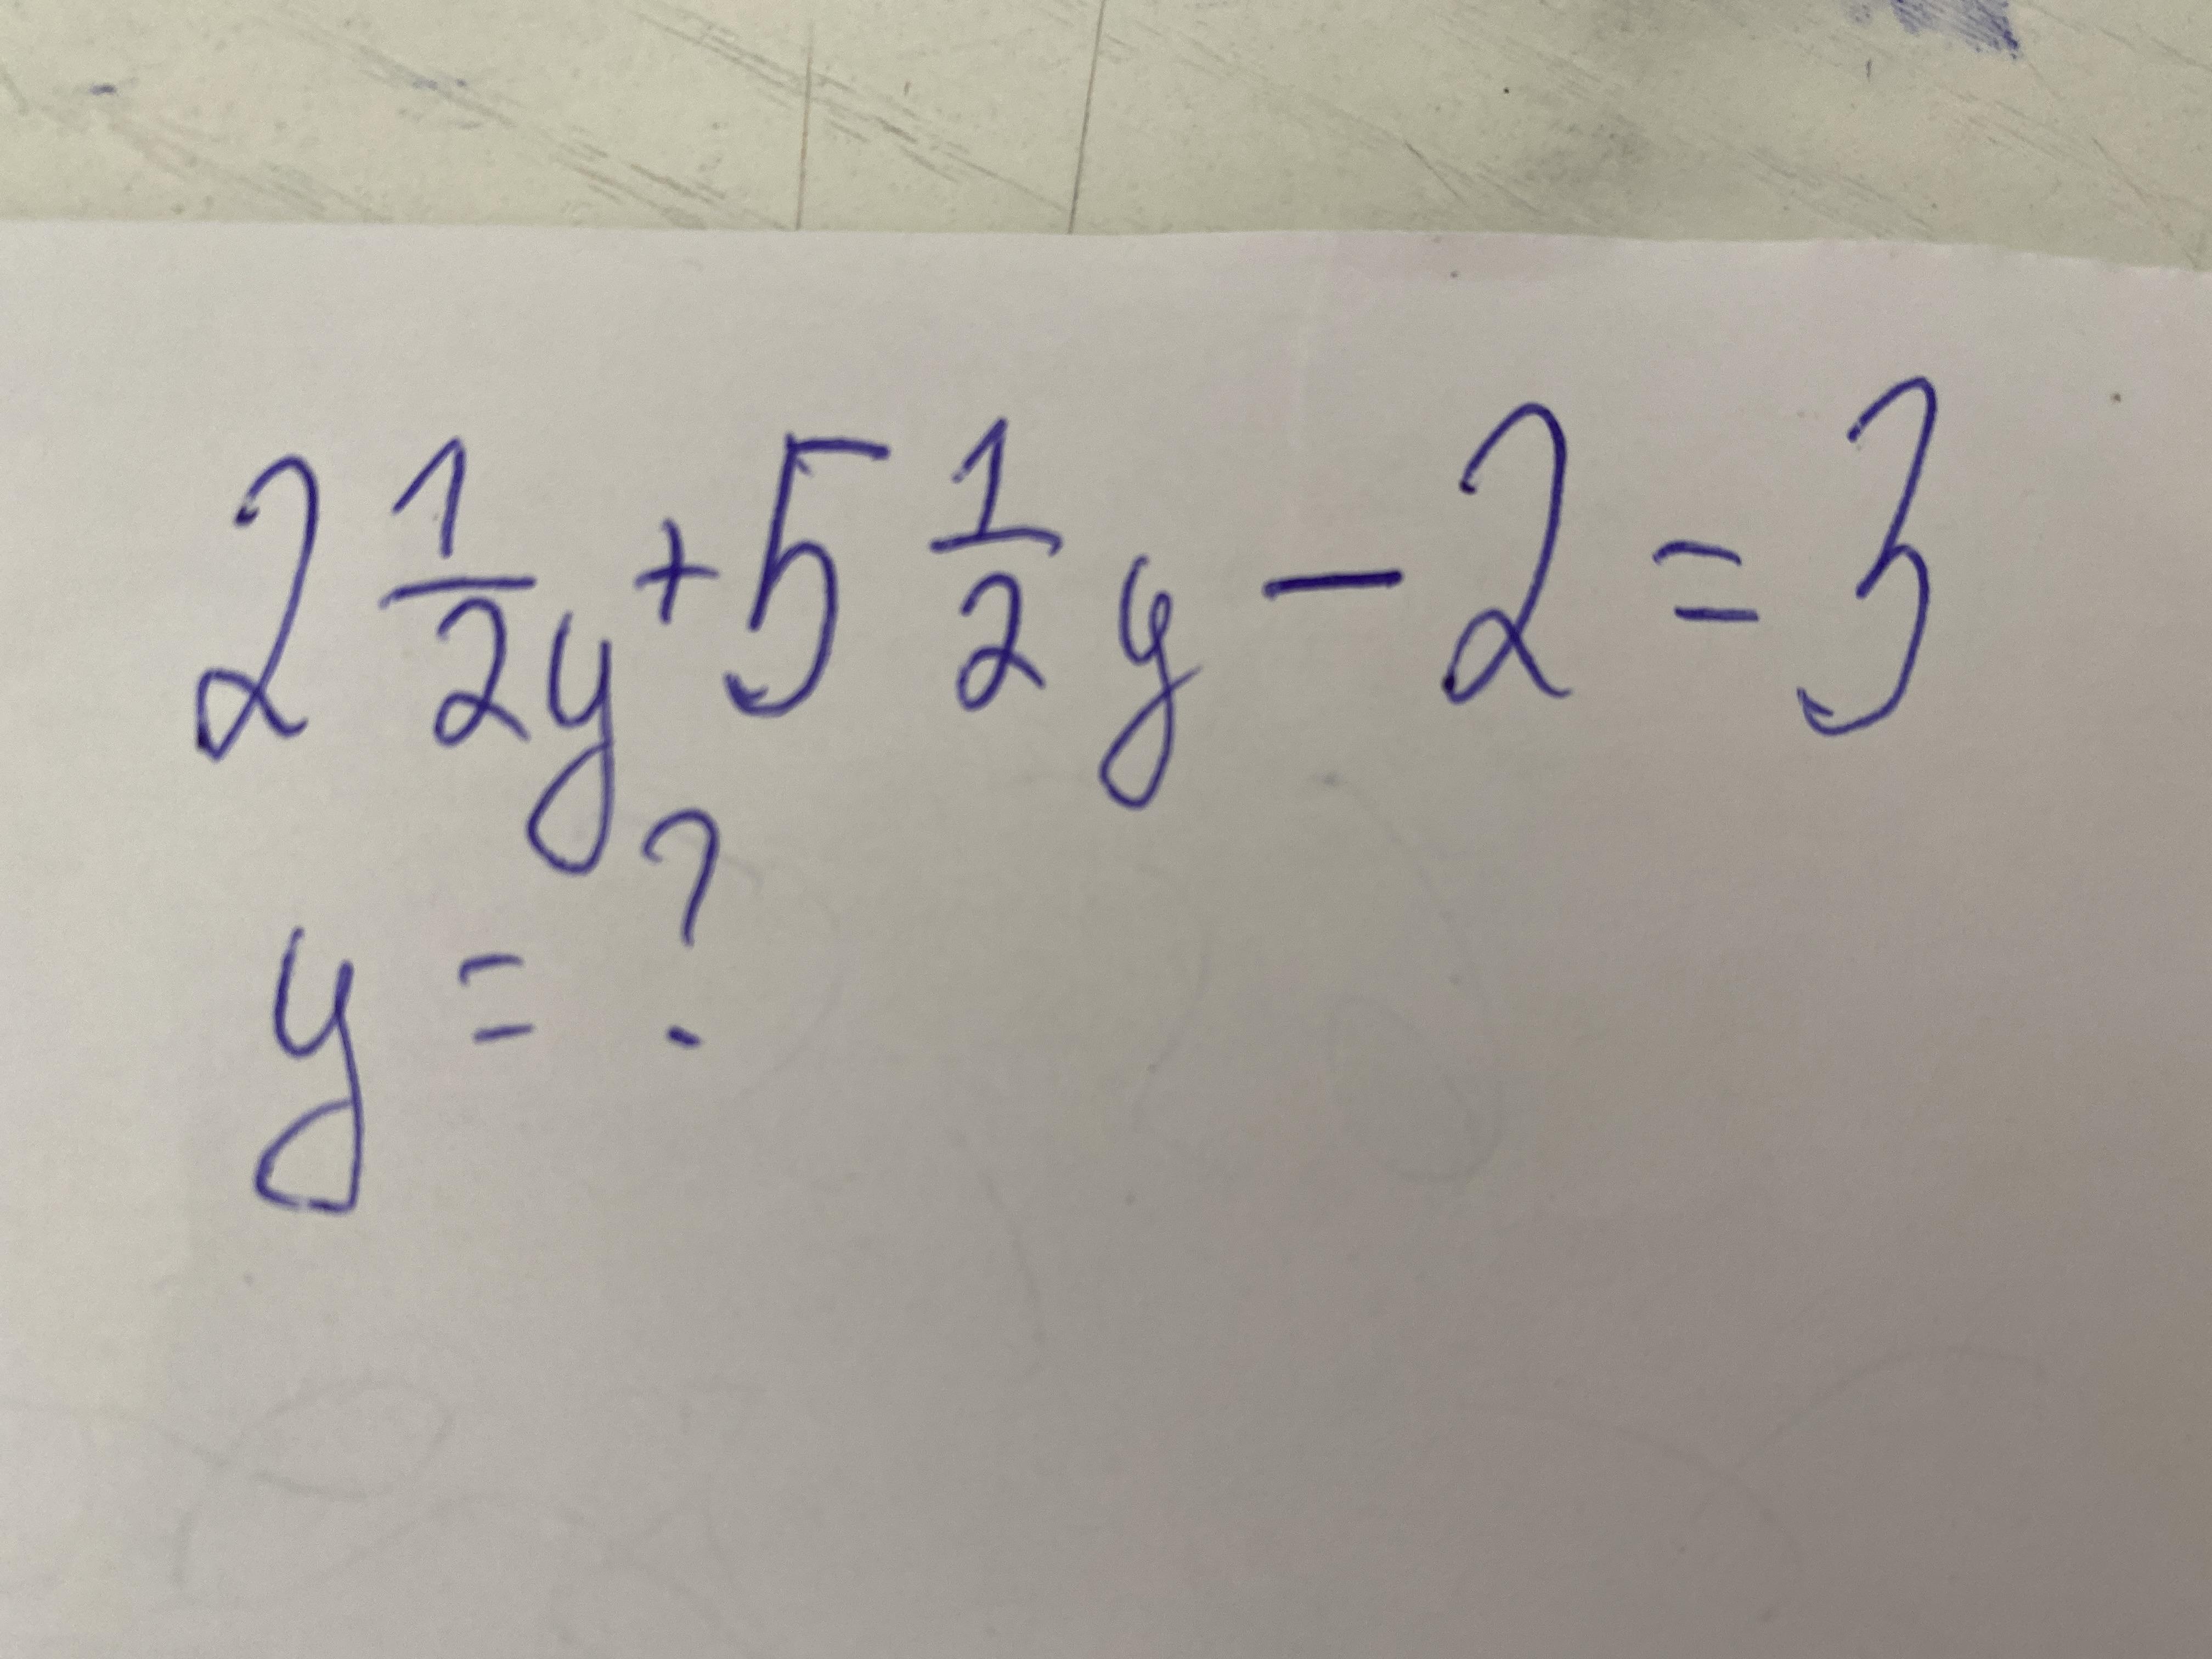 2 1/2 y + 5 1/2 y - 2 = 3
y = ?